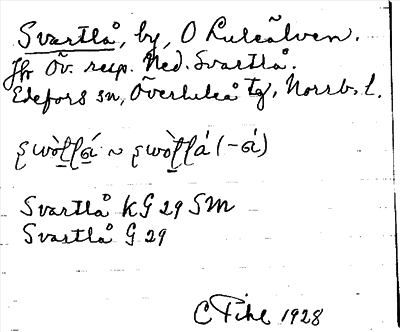 Svartlå, by, O Luleälven.
Jfr Öv. resp. Ned. Svartlå.
Edefors sn, Överluleå tg, Norrb. l.
Svartlå KG 29 SM
Svartlå G 29
C Pihl 1928